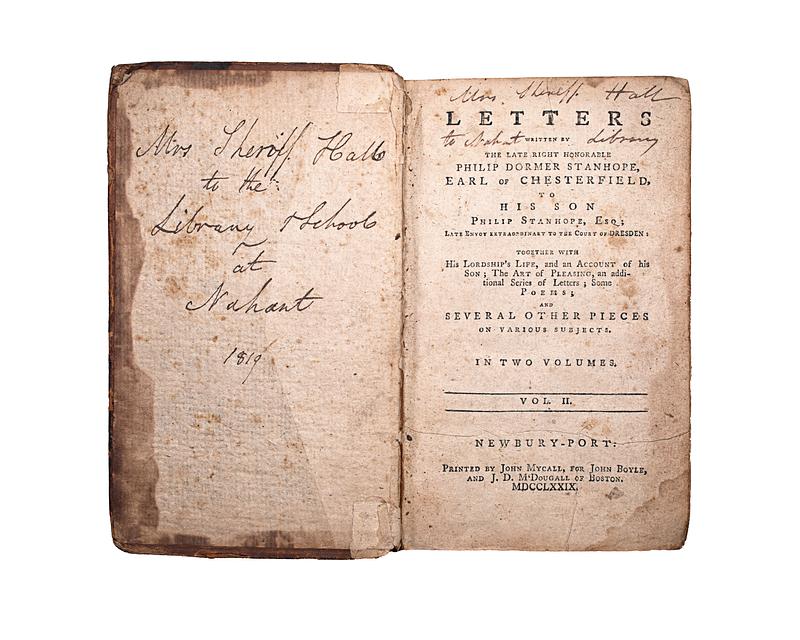 Mrs Sheriff Hall
to the
Library & School
at
Nahant
1819
Mrs. Sheriff Hall
LETTERS
to Nahant Library
WRITTEN BY
THE LATE RIGHT HONORABLE
PHILIP DORMER STANHOPE,
EARL OF CHESTERFIELD,
TO
HIS SON
PHILIP STANHOPE, ESQ;
LATE ENVOY EXTRAORDINARY TO THE COURT OF DRESDEN:
TOGETHER WITH
HIS LORDSHIP'S LIFE, and an ACCOUNT of his
SON; The ART of PLEASING, an addi-
tional Series of Letters; Some
POEMS;
AND
SEVERAL OTHER PIECES
ON VARIOUS SUBJECTS.
IN TWO VOLUMES.
VOL. II.
NEWBURY-PORT:
PRINTED BY JOHN MYCALL, FOR JOHN BOYLE,
AND J. D. M'DOUGALL OF BOSTON.
MDCCLXXIX.